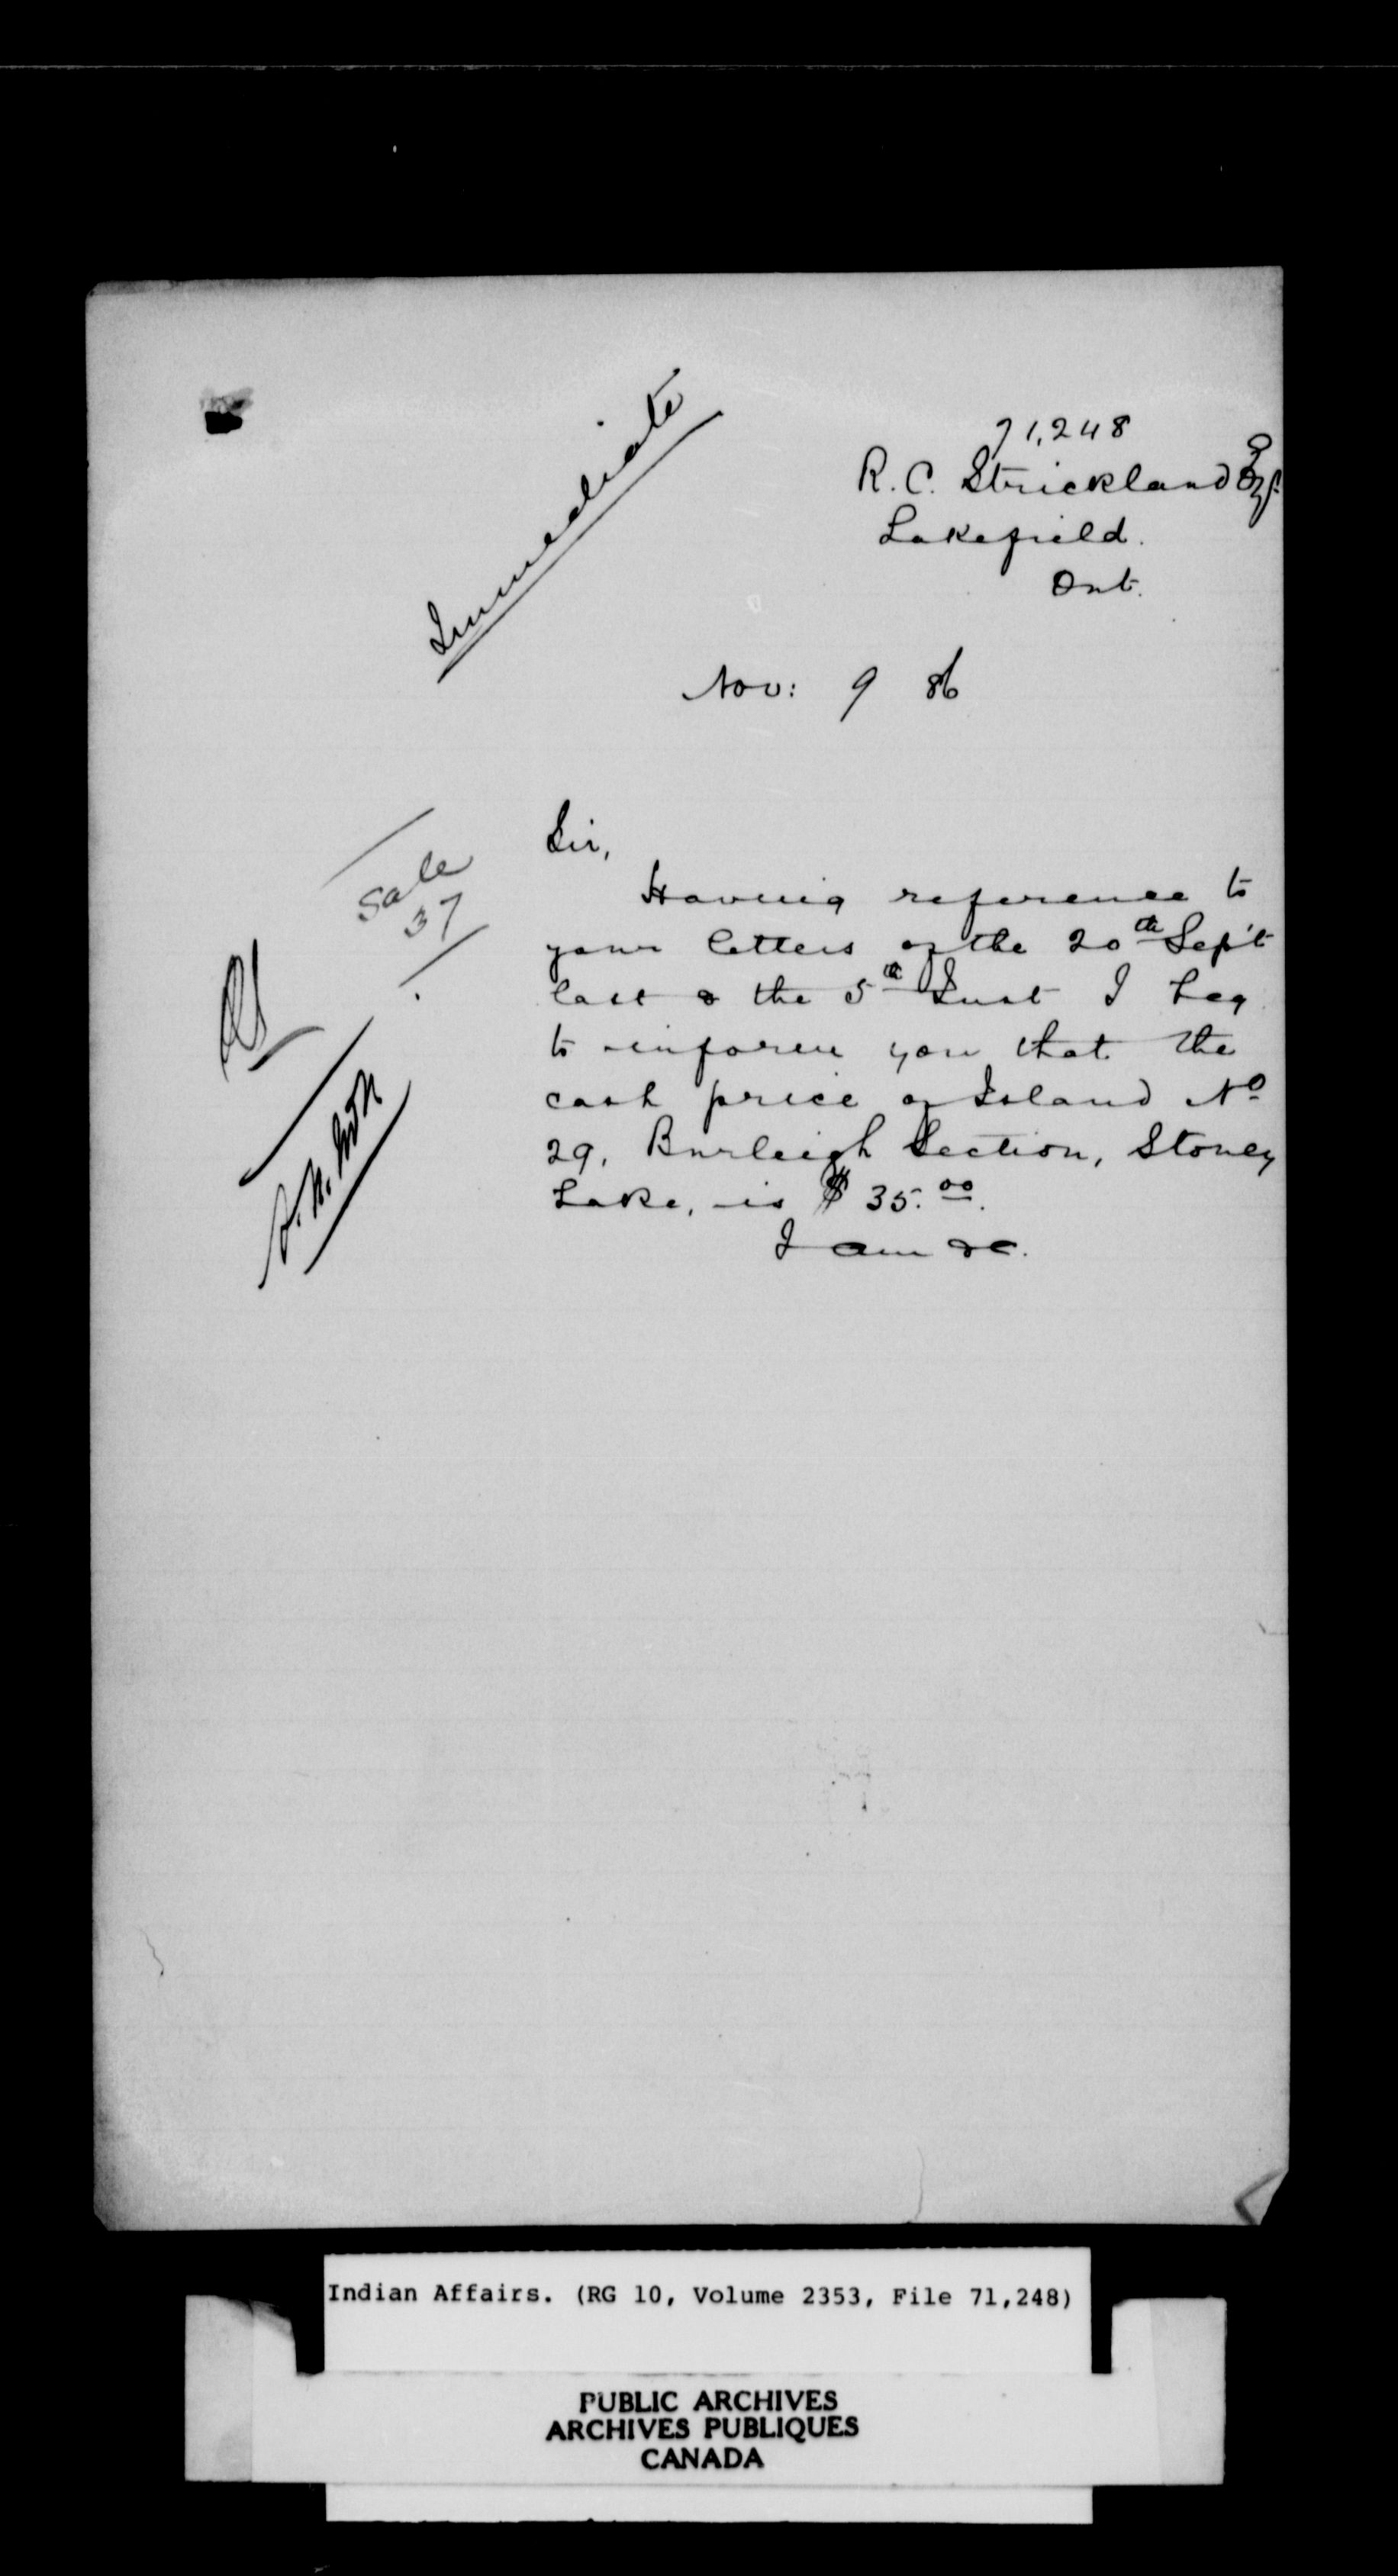 Immediate
71,248
R. C. Strickland Esq.
Lakefield.
Ont.
Nov: 9 86
Sale
37
Sir,
Having reference to
your letters of the 20th Sept
last & the 5th Inst I beg
to inform you that the
cash price of Island No
29, Burleigh Section, Stoney
Lake, is $ 35.00.
I am &c.
Indian Affairs. (RG 10, Volume 2353, File 71,248)
PUBLIC ARCHIVES
ARCHIVES PUBLIQUES
CANADA